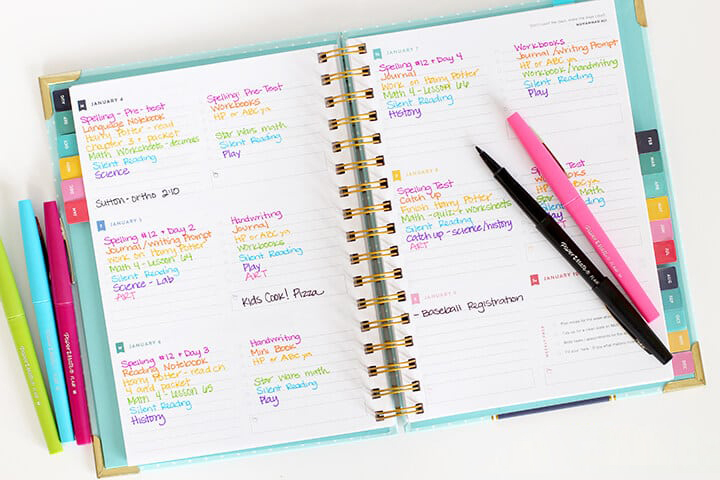 JANUARY 4
Spelling - Pre-test
Language Notebook
Harry Potter - read
Chapter 3 + packet
Math Worksheets - decimals
Silent Reading
Science
Spelling: Pre-Test
Workbooks
HP or ABC ya
Star Wars math
Silent Reading
Play
Sutton - ortho 2:10
JANUARY 5
Spelling #12 + Day 2
Journal/Writing Prompt
Work on Harry Potter
Math 4 - Lesson 64
Silent Reading
Science - Lab
ART
Handwriting
Journal
HP or ABC ya
Workbooks
Silent Reading
Play
ART
Kids Cook! Pizza
JANUARY 6
Spelling #12 + Day 3
Reading Notebook
Harry Potter - read ch
4 and packet
Math 4 - Lesson 65
Silent Reading
History
Handwriting
Mini Book
HP or ABC ya
Star Wars math
Silent Reading
Play
MUHAMMAD ALI
JANUARY 7
Spelling #12 + Day 4
Journal
Work on Harry Potter
Math 4 - Lesson 66
Silent Reading
History
Workbooks
Journal/Writing Prompt
HP or ABC ya
Workbook/handwriting
Silent Reading
Play
Spelling Test
Catch up
Finish Harry Potter
Math - quiz + worksheets
Silent Reading
Catch up - science/history
ART
Test
Workbooks
HP or ABC ya
Math
Silent
Play
ART
JANUARY 9
- Baseball Registration
JANUARY 10